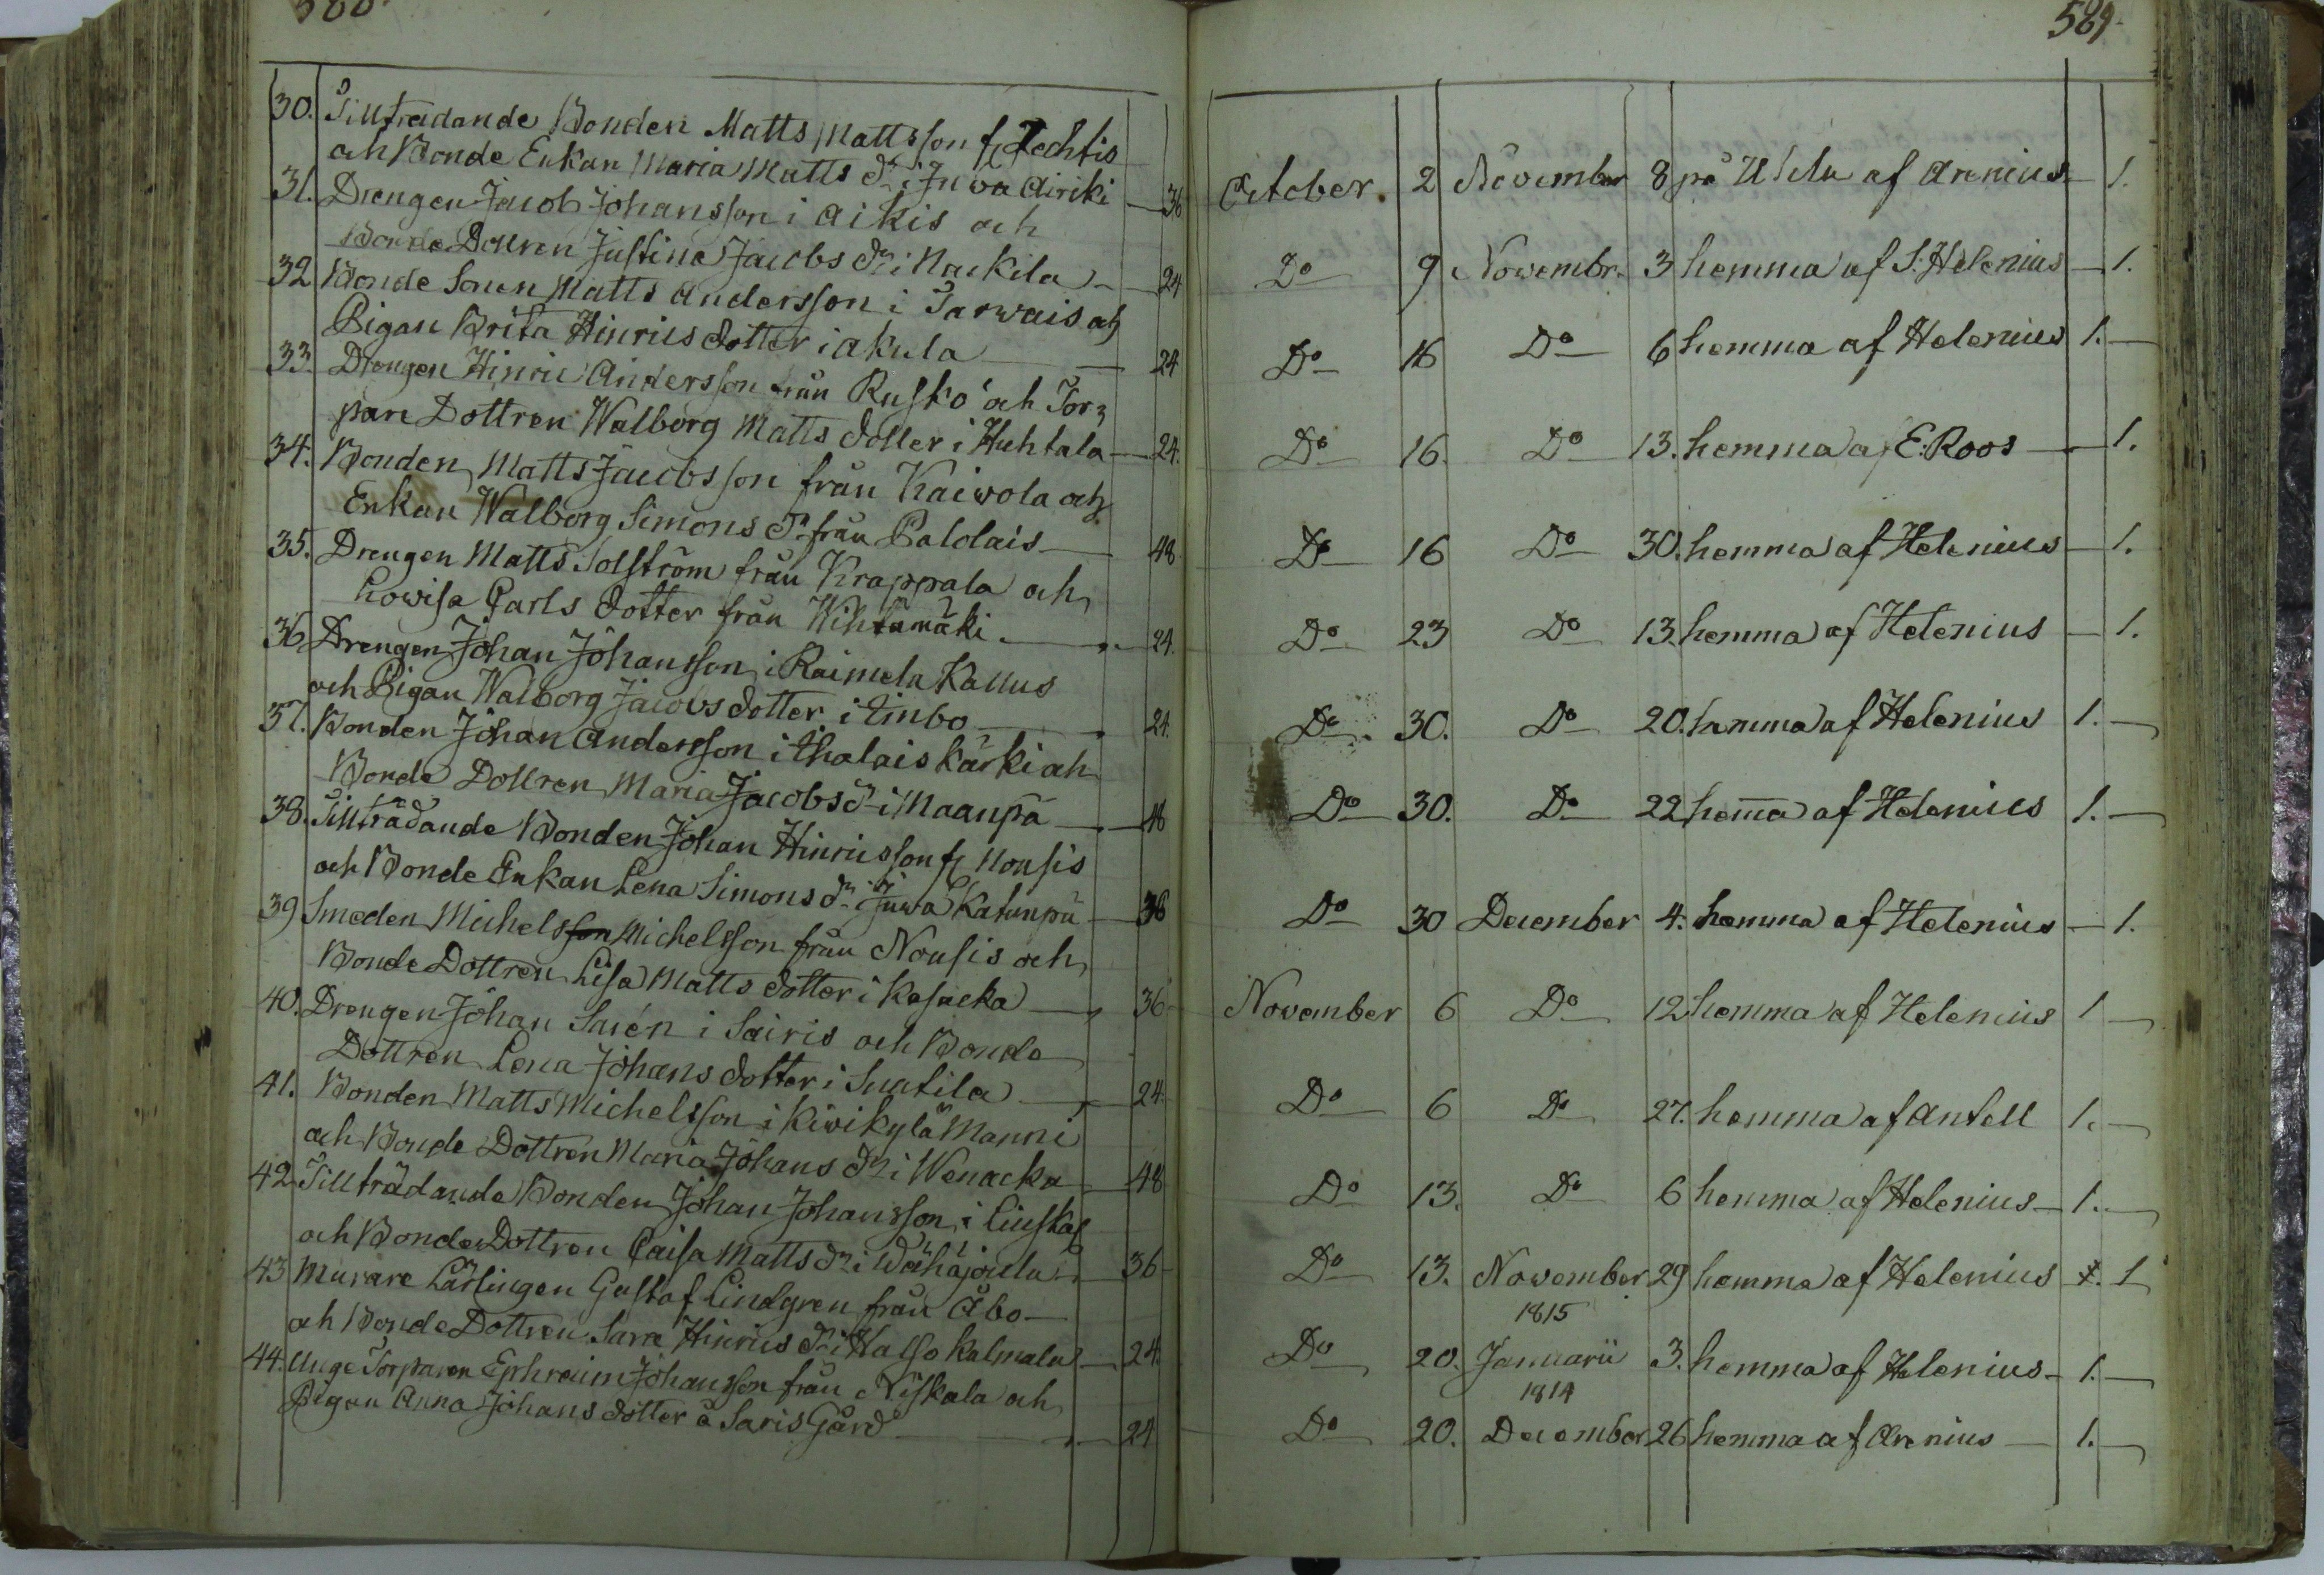 588.
30. Tillträdande Bonden Matts Mattsson fr Techtis
och Bonde Enkan Maria Matts dr i Juva Airiki — 36
31. Drengen Jacob Johansson i Aikis och
Bonde Dottren Justina Jacobs dr i Nackila — 24
32 Bonde Sonen Matts Andersson i Tarwais och
Pigan Brita Hinrics dotter i Akula — 24
33. Drengen Hinric Andersson från Rusko och Tor=
pare Dottren Walborg Matts dotter i Huhtala — 24.
34. Bonden Matts Jacobsson från Kaiwola och
Enkan Walborg Simons dr från Paldais — 48
35. Drengen Matts Solström från Krappala och
Lowisa Carls dotter från Wihtamäki — 24.
36 Drengen Johan Johansson i Raimela Kallus
och Pigan Walborg Jacobs dotter i Timbo — 24.
37. Bonden Johan Andersson i Ihalais Kärki och
Bonde Dottren Maria Jacobs dr i Maanpä — 48
38. Tillträdande Bonden Johan Hinricsson fr Nousis
och Bonde Enkan Lena Simons dr i Juva Katunpä — 36
39 Smeden Michelsson Michelsson från Nousis och
Bonde Dottren Lisa Matts dotter i Kasacka — 36
40. Drengen Johan Sarén i Sairis och Bonde
Dottren Lena Johans dotter i Suatila — 24.
41. Bonden Matts Michelsson i Kiwikylä Manni
och Bonde Dottren Maria Johans dr i Wenacka — 48
42. Tillträdande Bonden Johan Johansson i Liuskas
och Bonde Dottren Caisa Matts dr i Wähäjoula — 36
43 Murare Lärlingen Gustaf Lindgren från Åbo —
och Bonde Dottren Sara Hinrics dr i Halso Kalmala — 24.
44. Unge Torparen Ephraim Johansson från Niskala och
Pigan Anna Johans dotter å Saris Gård — 24
589.
October. 2 November 8 på af Arenius — 1.
Do 9 Novembr. 3 hemma af S. Helenius — 1.
Do 16 Do 6 hemma af Helenius 1. —
Do 16. Do 13. hemma af E. Roos — 1.
Do 16 Do 30. hemma af Helenius — 1.
Do 23 Do 13. hemma af Helenius — 1.
Do 30. Do 20. hemma af Helenius 1. —
Do 30. Do 22 hem̅a af Helenius 1. —
Do 30 December 4. hemma af Helenius — 1.
November 6 Do 12 hemma af Helenius 1 —
Do 6 Do 27. hemma af Antell 1. —
Do 13. Do 6 hemma af Helenius — 1. —
Do 13. November 29 hemma af Helenius 1
1815
Do 20. Januarii 3. hemma af Helenius — 1. —
1814
Do 20. December 26 hemma af Arenius — 1. —